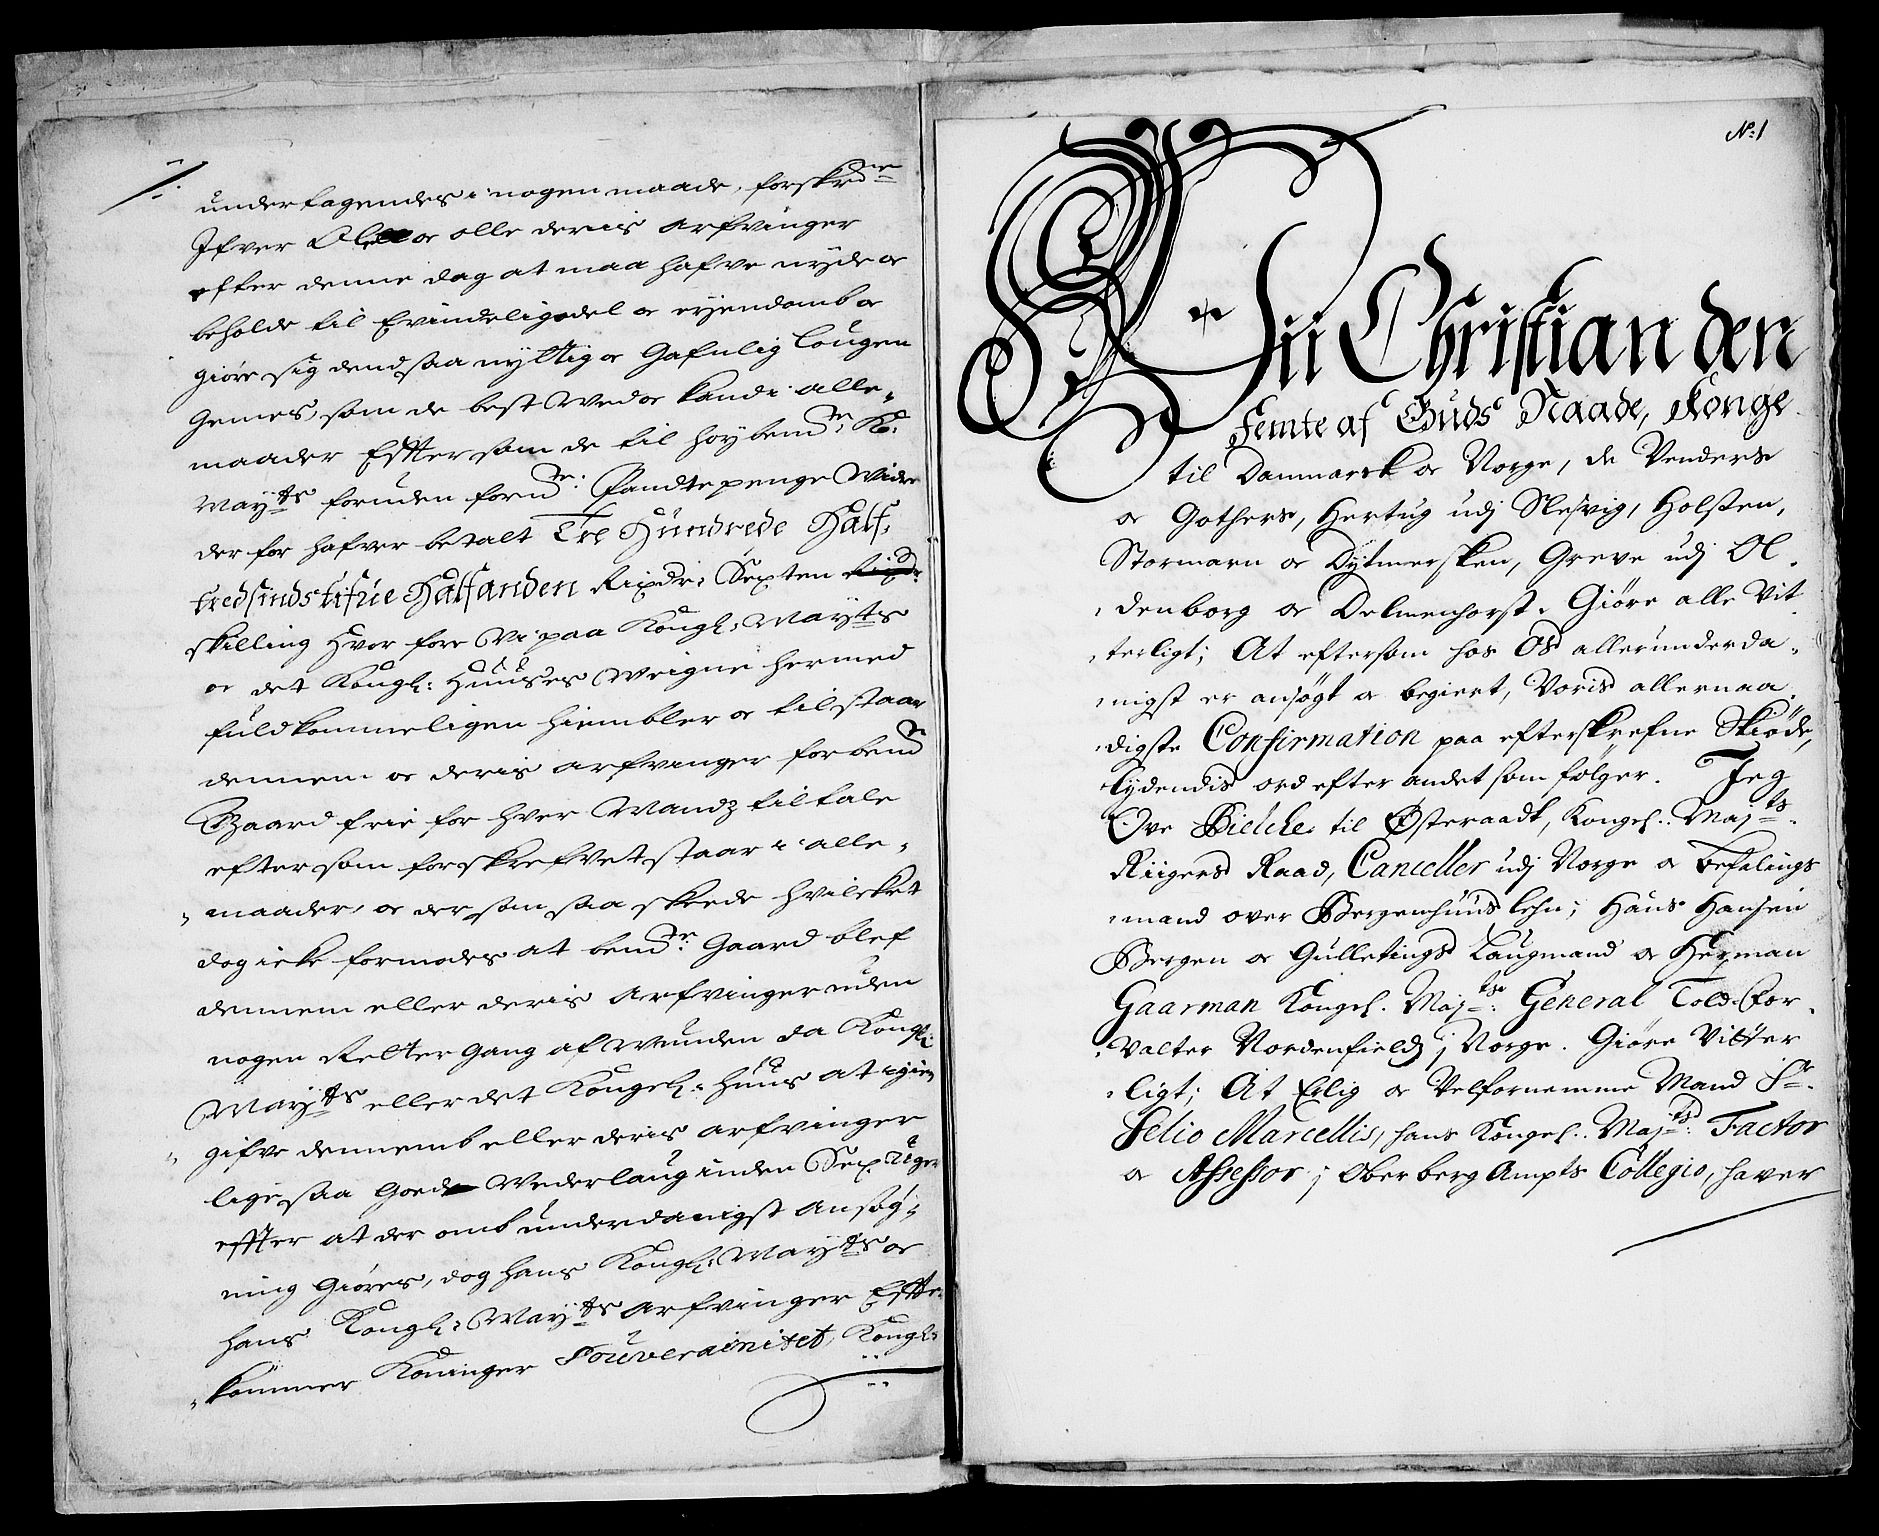 undertagendes i nogen maade, forskrne
Ifver Ol or alle deris arfvinger
efter denne dag at maa hafve nyde oc
beholde til Evindelig odel oc eyendomb oc
giøre sig dend saa nyttig oc Gafnlig Lougen
Gemes, som de best Wed oc kand i alle
maader Effter som de til høybemte: Ko:
Mayts foruden fornte: Pandtepenge Wider
der for hafver betalt Tre Hundrede Half-
tredsindstifue Halfanden Rixdr: Sexten
skilling Hvor fore Vi paa Kongl: Mayts
oc det Kongl: Huuses Weigne hermed
fuldkommeligen hiembler oc tilstaar
dennem oc deris arfvinger forbemte
Gaard frie for hver Mandz tiltale
eftersom forskrefvet staar i alle
maader, oc der som saa skeede hvilcket
dog icke formodes at bemte: Gaard blef
dennem eller deris Arfvinger uden
nogen Retter Gang af Wunden da Kongl:
Mayts eller det Kongel: Huus at igien
gifve dennemb eller deris arfvinger
lige saa Goed Wederlaug inden Sex Uger
effter at der omb underdanigst ansøg-
ning Giøres, dog hans Kongl: Mayts oc
hans Kongl: Mayts arfvinger Effter
kommer Koninger Souverainitet, Kongl:
No: 1
Vii Christian den
Femte af Guds Naade, Konge
til Danmarck oc Norge, de Venders
oc Gothers, Hertug udj Slesvig, Holsten,
Stormarn oc Dytmersken, Greve udj Ol
denborg oc Delmenhorst. Giøre alle Vit
terligt; At eftersom hos Os allerunderda
nigst er ansøgt oc begiert, Voris allernaa
digste Confirmation paa efterskrefne Skiøde,
Lydendis ord efter andet som følger. Jeg
Ove Bielche til Østeraadt, Kongel. Majts
Riigens Raad, Canceller udj Norge oc befalings
mand over Bergenhuus Lehn; Hans Hansen
Bergen oc Gulletings Laugmand oc Herman
Gaarman Kongel. Majts: General Told-For
valter Nordenfields j Norge. Giøre Vitter
ligt; At Erlig oc Velfornemme Mand Sr.
Selio Marcellis, hans Kongel. Majts: Factor
oc Assessor j Oberberg Ampts Collegio, haver